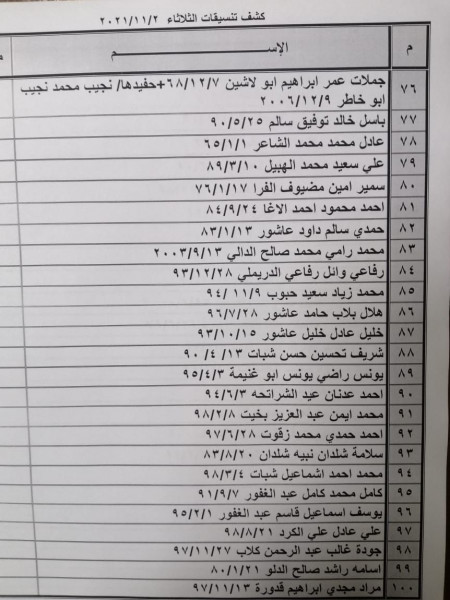 كشف تنسيقات الثلاثاء ٢٠٢١/١١/٢
م الإســـــــم
٧٦ جملات عمر ابراهيم ابو لاشين ٦٨/١٢/٧+حفيدها/ نجيب محمد نجيب
ابو خاطر ٢٠٠٦/١٢/٩
٧٧ باسل خالد توفيق سالم ٩٠/٥/٢٥
٧٨ عادل محمد محمد الشاعر ٦٥/١/١
٧٩ علي سعيد محمد الهبيل ٨٩/٣/١٠
٨٠ سمير امين مضيوف الفرا ٧٦/١/١٧
٨١ احمد محمود احمد الاغا ٨٤/٩/٢٤
٨٢ حمدي سالم داود عاشور ٨٣/١/١٣
٨٣ محمد رامي محمد صالح الدالي ٢٠٠٣/٩/١٣
٨٤ رفاعي وائل رفاعي الدريملي ٩٣/١٢/٢٨
٨٥ محمد زياد سعيد حبوب ٩٤/١١/٩
٨٦ هلال بلاب حامد عاشور ٩٦/٧/٢٨
٨٧ خليل عادل خليل عاشور ٩٣/١٠/١٥
٨٨ شريف تحسين حسن شبات ١٣/ ٤/ ٩٠
٨٩ يونس راضي يونس ابو غنيمة ٩٥/٤/٣
٩٠ احمد عدنان عيد الشراتحه ٩٤/٦/٣
٩١ محمد ايمن عبد العزيز بخيت ٩٨/٢/٨
٩٢ احمد حمدي محمد زقوت ٩٧/٦/٢٨
٩٣ سلامة شلدان نبيه شلدان ٨٣/٨/٢٠
٩٤ محمد احمد اشماعيل شبات ٩٨/٣/٤
٩٥ كامل محمد كامل عبد الغفور ٩١/٩/٧
٩٦ يوسف اسماعيل قاسم عبد الغفور ٩٥/٢/١
٩٧ علي عادل علي الكرد ٩٨/٨/٢١
٩٨ جودة غالب عبد الرحمن كلاب ٩٧/١١/٢٧
٩٩ اسامه راشد صالح الدلو ٨٠/١/٢١
١٠٠ مراد مجدي ابراهيم قدورة ٩٧/١١/١٣